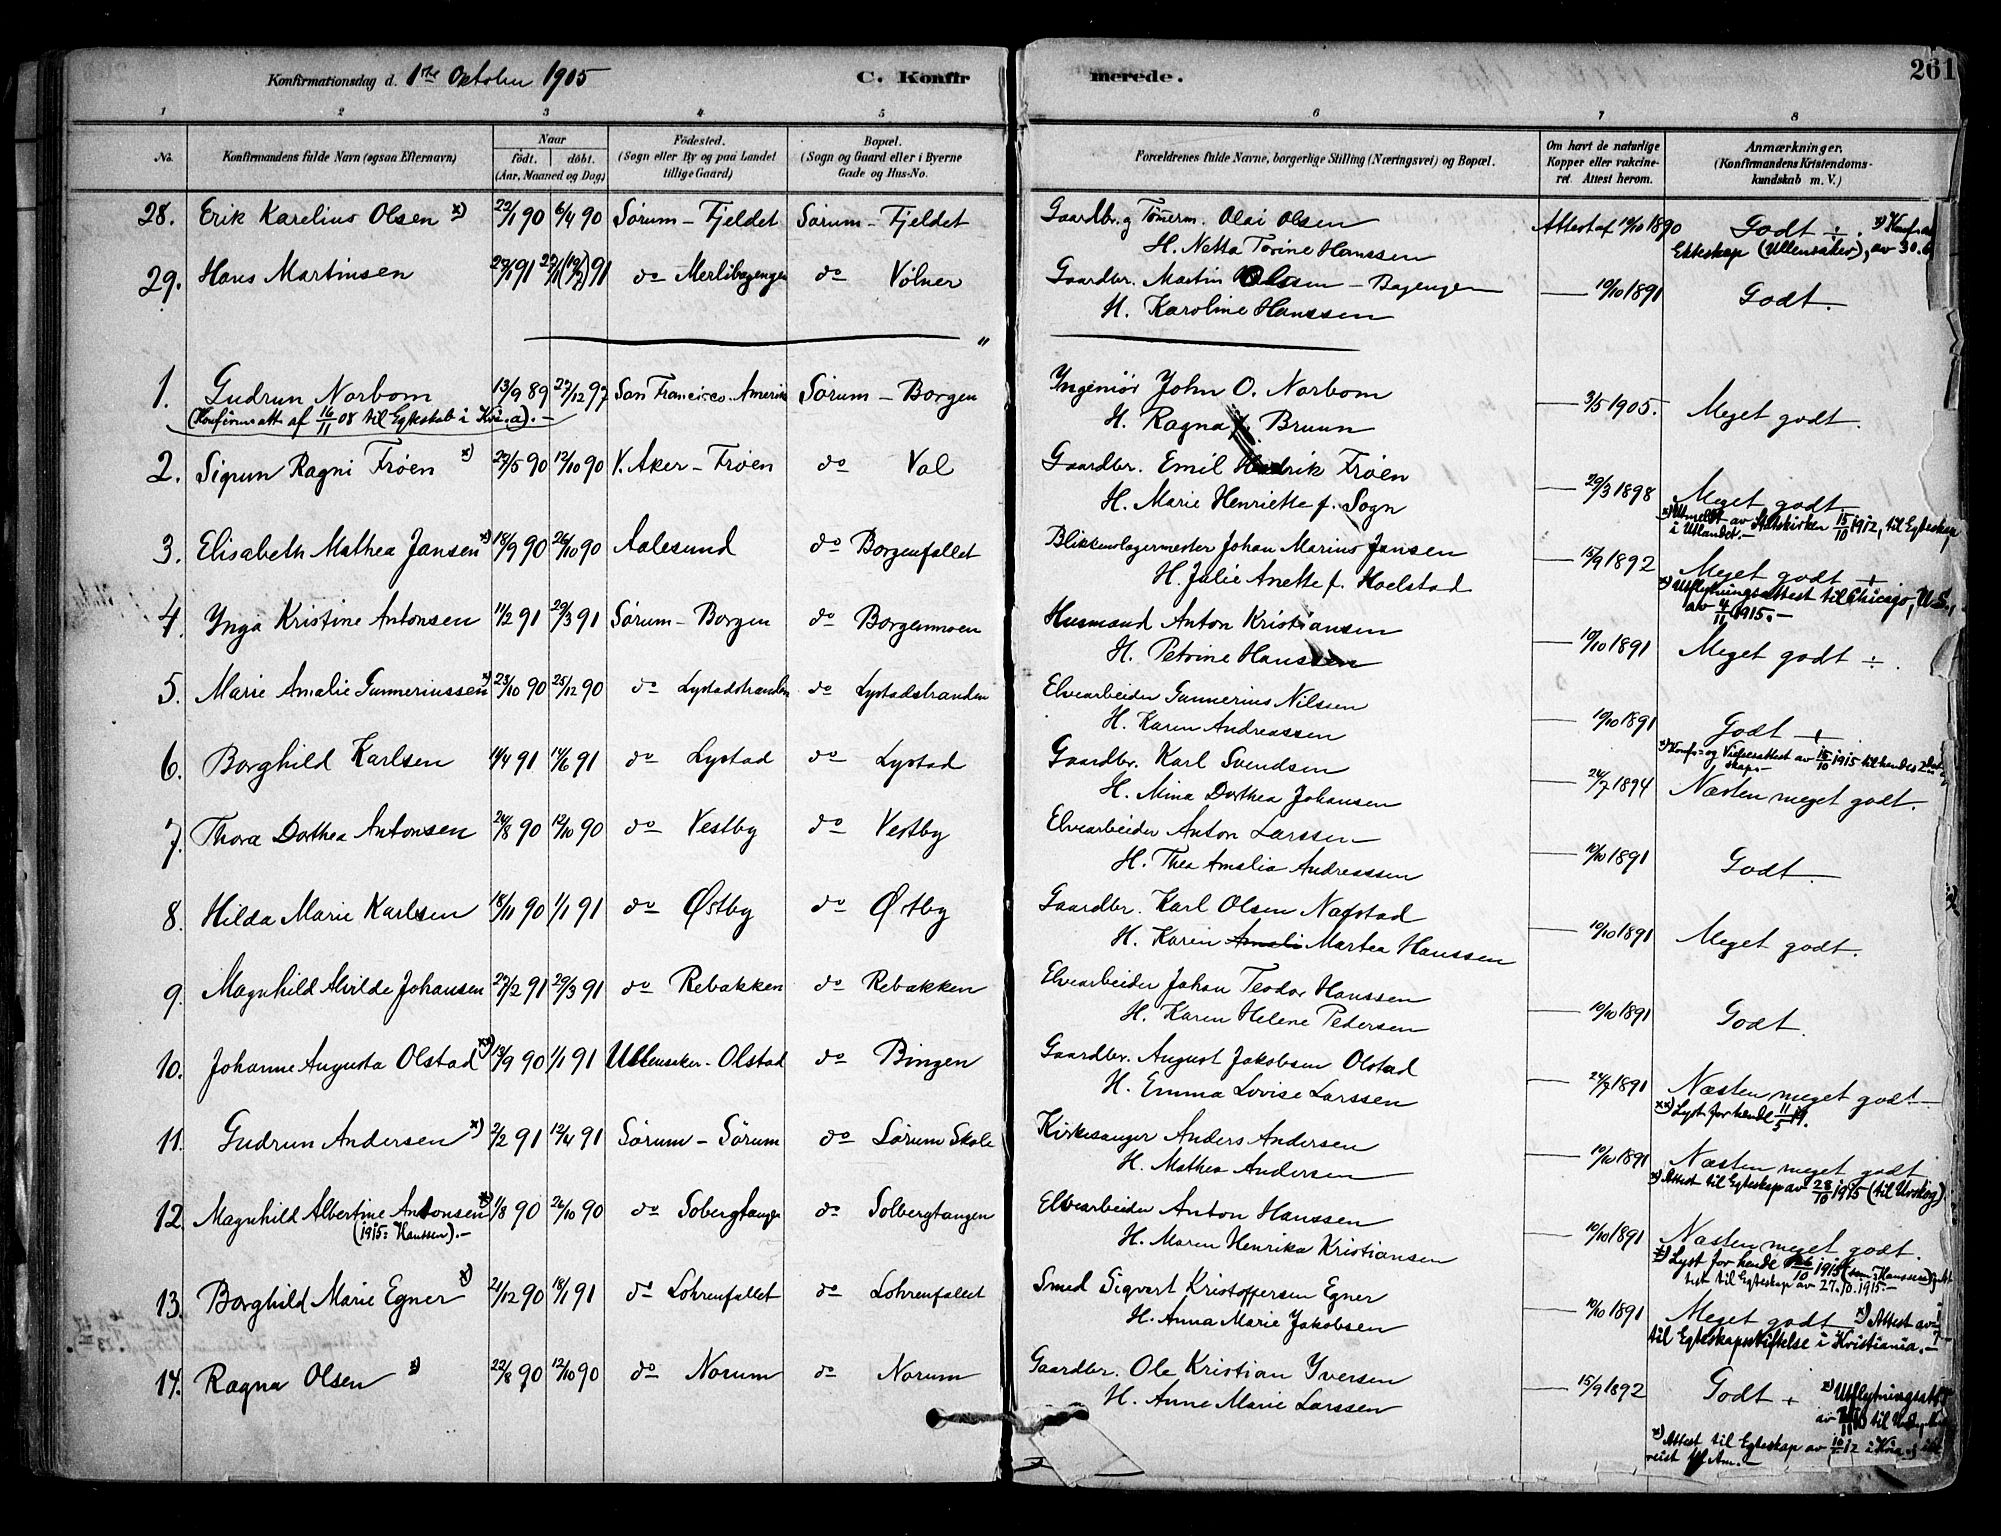 Konfirmationsdag d. 1ste Oktober 1905 C. Konfirmerede. 261
1 2 3 4 5 6 7 8
No. Konfirmandens fulde Navn (ogsaa Efternavn) Naar født. døbt. (Aar, Maaned og Dag) Fødested. (Sogn eller By og paa Landet tillige Gaard) Bopæl. (Sogn og Gaard eller i Byerne Gade og Hus-No. Forældrenes fulde Navne, borgerlige Stilling (Næringsvei) og Bopæl. Om havt de naturlige Kopper eller vakcineret. Attest herom. Anmærkninger. (Konfirmandens Kristendomskundskab m. V.)
28. Erik Karelius Olsen x) 22/1 90 6/4 90 Sørum - Fjeldet Sørum - Fjeldet Gaardbr. og Tømerm. Olai Olsen Attest af 10/10 1890 Godt ÷.
H. Netta Torine Hanssen Egteskap (Ullensaker), av 30.6
29. Hans Martinsen do Merlibagengen do Vølner Gaardbr. Martin Olssen - Bagengen — 10/10 1891 Godt.
H. Karoline Hanssen
1. Gudrun Norbom 13/9 89 27/12 97 San Francisco. Amerika Sørum - Borgen Ingeniør John O. Norbom — 3/5 1905. Meget godt.
(Konfirm.att. af 16/11 08 til Egteskab i Kr.a). — H. Ragna f. Bruun
2. Sigrun Ragni Frøen x) 27/5 90 12/10 90 V. Aker - Frøen do Val Gaardbr. Emil Hendrik Frøen — 29/3 1898 Meget godt.
H. Marie Henriette f. Sogn x) Utmeldt av Statskirken 15/10 1912, til Egteskap i Utlandet. —
3. Elisabeth Mathea Jansen x) 18/9 90 26/10 90 Aalesund do Borgenfallet Blikkenslagermester Johan Marius Jansen — 15/9 1892 Meget godt +
H. Julie Anette f. Hoelstad x) Utflytningsattest til Chicago, U.S., av 4/11 1915. —
4. Ynga Kristine Antonsen 11/2 91 29/3 91 Sørum - Borgen do Borgenmoen Husmand Anton Kristiansen — 10/10 1891 Meget godt ÷.
H. Petrine Hanssen
5. Marie Amalie Gunneriussen x) 23/10 90 25/12 90 do Lystadstranden do Lystadstranden Elvearbeider Gunnerius Nilssen — 10/10 1891 Godt +
H. Karen Andreassen x) Konf.- og Vielsesattest av 15/10 1915 til hendes 2det
6. Borghild Karlsen 14/4 91 14/6 91 do Lystad do Lystad Gaardbr. Karl Svendsen — 24/7 1894 Næsten meget godt.
H. Mina Dorthea Johansen
7. Thora Dorthea Antonsen 24/8 90 12/10 90 do Vestby do Vestby Elvearbeider Anton Larssen — 10/10 1891 Godt.
H. Thea Amalia Andreassen
8. Hilda Marie Karlsen 18/11 90 1/1 91 do Østby do Østby Gaardbr. Karl Olsen Nafstad — 10/10 1891 Meget godt.
H. Karen Amali Martea Hanssen
9. Magnhild Alvilde Johansen 27/2 91 29/3 91 do Rebakken do Rebakken Elvearbeider Johan Teodor Hanssen — 10/10 1891 Godt.
H. Karen Helene Pedersen
10. Johanne Augusta Olstad xx) 19/9 90 1/1 91 Ullensaker - Olstad do Bingen Gaardbr. August Jakobsen Olstad — 24/7 1891 Næsten meget godt —
H. Emma Lovise Larssen xx) Lyst for hende 11/5
11. Gudrun Andersen x) 2/2 91 12/4 91 Sørum - Sørum do Sørum Skole Kirkesanger Anders Andersen — 10/10 1891 Næsten meget godt
H. Mathea Andersen x) Attest til Egteskap av 28/10 1915 (til Urskog)
12. Magnhild Albertine Antonsen x) 1/8 90 26/10 90 do Sobergtangen do Solbergtangen Elvearbeider Anton Hanssen — 10/10 1891 Næsten meget godt.
(1915: Hanssen). — H. Maren Henrika Kristiansen x) Lyst for hende 1915 Hanssen) Attest til Egteskap av 27.10.1915. —
13. Borghild Marie Egner x) 21/12 90 18/1 91 do Lohrenfallet do Lohrenfallet Smed Sigvart Kristoffersen Egner — 10/10 1891 Meget godt — x) Attest av
H. Anna Marie Jakobsen til Egteskapsstiftelse i Kristiania. —
14. Ragna Olsen x) 22/8 90 12/10 90 do Norum do Norum Gaardbr. Ole Kristian Yversen — 15/9 1892 Godt + x) Utflytningsatt.
H. Anne Marie Larssen
x) Attest til Egteskap av i Kr.a